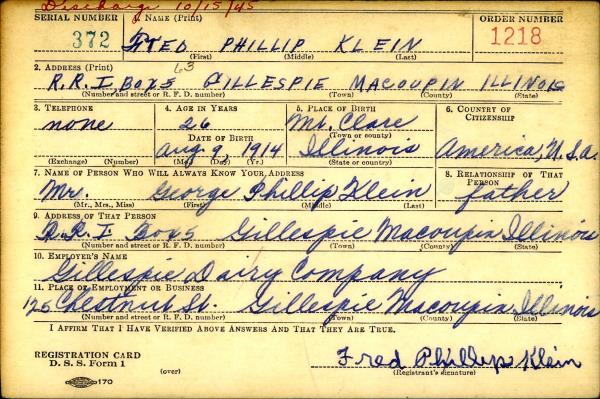 Discharge 10/15/45
SERIAL NUMBER 1. NAME (Print) ORDER NUMBER
372 FRED PHILLIP KLEIN 1218
(First) (Middle) (Last)
2. ADDRESS (Print) 63
R.R.I BOX 5 GILLESPIE MACOUPIN ILLINOIS
(Number and street or R. F. D. number) (Town) (County) (State)
3. TELEPHONE 4. AGE IN YEARS 5. PLACE OF BIRTH 6. COUNTRY OF CITIZENSHIP
none 26 Mt. Clare
DATE OF BIRTH (Town or county)
Aug. 9, 1914 Illinois America, U.S.A.
(Exchange) (Number) (Mo.) (Day) (Yr.) (State or country)
7. NAME OF PERSON WHO WILL ALWAYS KNOW YOUR ADDRESS 8. RELATIONSHIP OF THAT PERSON
Mr. George Phillip Klein father
(Mr., Mrs., Miss) (First) (Middle) (Last)
9. ADDRESS OF THAT PERSON
R.R.I Box 5 Gillespie Macoupin Illinois
(Number and street or R. F. D. number) (Town) (County) (State)
10. EMPLOYER'S NAME
Gillespie Dairy Company
11. PLACE OF EMPLOYMENT OR BUSINESS
125 Chestnut St. Gillespie Macoupin Illinois
(Number and street or R. F. D. number) (Town) (County) (State)
I AFFIRM THAT I HAVE VERIFIED ABOVE ANSWERS AND THAT THEY ARE TRUE.
REGISTRATION CARD
D. S. S. Form 1 Fred Phillip Klein
170 (over) (Registrant's signature)